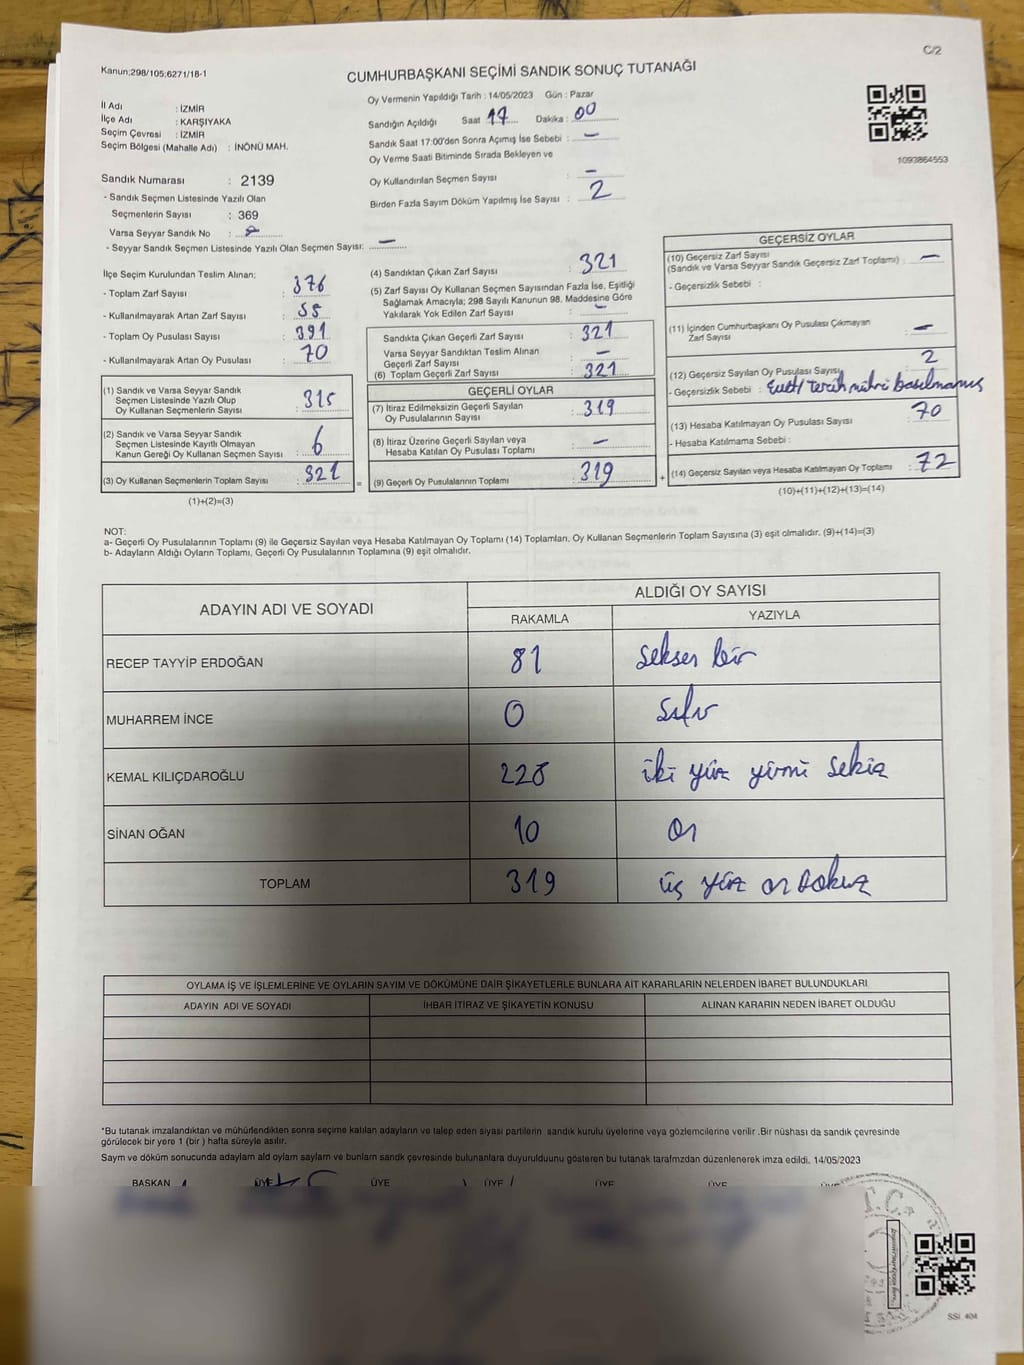 C/2
Kanun;298/105;6271/18-1
CUMHURBAŞKANI SEÇİMİ SANDIK SONUÇ TUTANAĞI
İl Adı : İZMİR
İlçe Adı : KARŞIYAKA
Seçim Çevresi : İZMİR
Seçim Bölgesi (Mahalle Adı) : İNÖNÜ MAH.
Oy Vermenin Yapıldığı Tarih : 14/05/2023 Gün : Pazar
Sandığın Açıldığı Saat 17 Dakika : 00
Sandık Saat 17:00'den Sonra Açımış İse Sebebi : —
Oy Verme Saati Bitiminde Sırada Bekleyen ve
Oy Kullandırılan Seçmen Sayısı : —
Birden Fazla Sayım Döküm Yapılmış İse Sayısı : 2
1093864553
Sandık Numarası : 2139
- Sandık Seçmen Listesinde Yazılı Olan
Seçmenlerin Sayısı : 369
Varsa Seyyar Sandık No :
- Seyyar Sandık Seçmen Listesinde Yazılı Olan Seçmen Sayısı: —
İlçe Seçim Kurulundan Teslim Alınan;
- Toplam Zarf Sayısı : 376
- Kullanılmayarak Artan Zarf Sayısı : 55
- Toplam Oy Pusulası Sayısı : 391
- Kullanılmayarak Artan Oy Pusulası : 70
(1) Sandık ve Varsa Seyyar Sandık
Seçmen Listesinde Yazılı Olup
Oy Kullanan Seçmenlerin Sayısı : 315
(2) Sandık ve Varsa Seyyar Sandık
Seçmen Listesinde Kayıtlı Olmayan
Kanun Gereği Oy Kullanan Seçmen Sayısı : 6
(3) Oy Kullanan Seçmenlerin Toplam Sayısı : 321
(1)+(2)=(3)
(4) Sandıktan Çıkan Zarf Sayısı : 321
(5) Zarf Sayısı Oy Kullanan Seçmen Sayısından Fazla İse, Eşitliği
Sağlamak Amacıyla; 298 Sayılı Kanunun 98. Maddesine Göre
Yakılarak Yok Edilen Zarf Sayısı : —
Sandıkta Çıkan Geçerli Zarf Sayısı : 321
Varsa Seyyar Sandıktan Teslim Alınan
Geçerli Zarf Sayısı : —
(6) Toplam Geçerli Zarf Sayısı : 321
GEÇERLİ OYLAR
(7) İtiraz Edilmeksizin Geçerli Sayılan
Oy Pusulalarının Sayısı : 319
(8) İtiraz Üzerine Geçerli Sayılan veya
Hesaba Katılan Oy Pusulası Toplamı : —
(9) Geçerli Oy Pusulalarının Toplamı : 319
GEÇERSİZ OYLAR
(10) Geçersiz Zarf Sayısı
(Sandık ve Varsa Seyyar Sandık Geçersiz Zarf Toplamı) : —
- Geçersizlik Sebebi :
(11) İçinden Cumhurbaşkanı Oy Pusulası Çıkmayan
Zarf Sayısı : —
(12) Geçersiz Sayılan Oy Pusulası Sayısı : 2
- Geçersizlik Sebebi : Evet/ tercih mührü basılmamış
(13) Hesaba Katılmayan Oy Pusulası Sayısı : 70
- Hesaba Katılmama Sebebi :
(14) Geçersiz Sayılan veya Hesaba Katılmayan Oy Toplamı : 72
(10)+(11)+(12)+(13)=(14)
NOT:
a- Geçerli Oy Pusulalarının Toplamı (9) ile Geçersiz Sayılan veya Hesaba Katılmayan Oy Toplamı (14) Toplamları, Oy Kullanan Seçmenlerin Toplam Sayısına (3) eşit olmalıdır. (9)+(14)=(3)
b- Adayların Aldığı Oyların Toplamı, Geçerli Oy Pusulalarının Toplamına (9) eşit olmalıdır.
ADAYIN ADI VE SOYADI
ALDIĞI OY SAYISI
RAKAMLA YAZIYLA
RECEP TAYYİP ERDOĞAN 81 seksen bir
MUHARREM İNCE 0 sıfır
KEMAL KILIÇDAROĞLU 228 iki yüz yirmi sekiz
SİNAN OĞAN 10 on
TOPLAM 319 üç yüz on dokuz
OYLAMA İŞ VE İŞLEMLERİNE VE OYLARIN SAYIM VE DÖKÜMÜNE DAİR ŞİKAYETLERLE BUNLARA AİT KARARLARIN NELERDEN İBARET BULUNDUKLARI
ADAYIN ADI VE SOYADI İHBAR İTİRAZ VE ŞİKAYETİN KONUSU ALINAN KARARIN NEDEN İBARET OLDUĞU
*Bu tutanak imzalandıktan ve mühürlendikten sonra seçime katılan adayların ve talep eden siyasi partilerin sandık kurulu üyelerine veya gözlemcilerine verilir .Bir nüshası da sandık çevresinde
görülecek bir yere 1 (bir ) hafta süreyle asılır.
Sayım ve döküm sonucunda adayların ald oylam saylam ve bunlarn sandk çevresinde bulunanlara duyurulduunu gösteren bu tutanak tarafmzdan düzenlenerek imza edildi. 14/05/2023
BAŞKAN ÜYE ÜYE ÜYE ÜYE ÜYE
T.C.
SSİ. 404